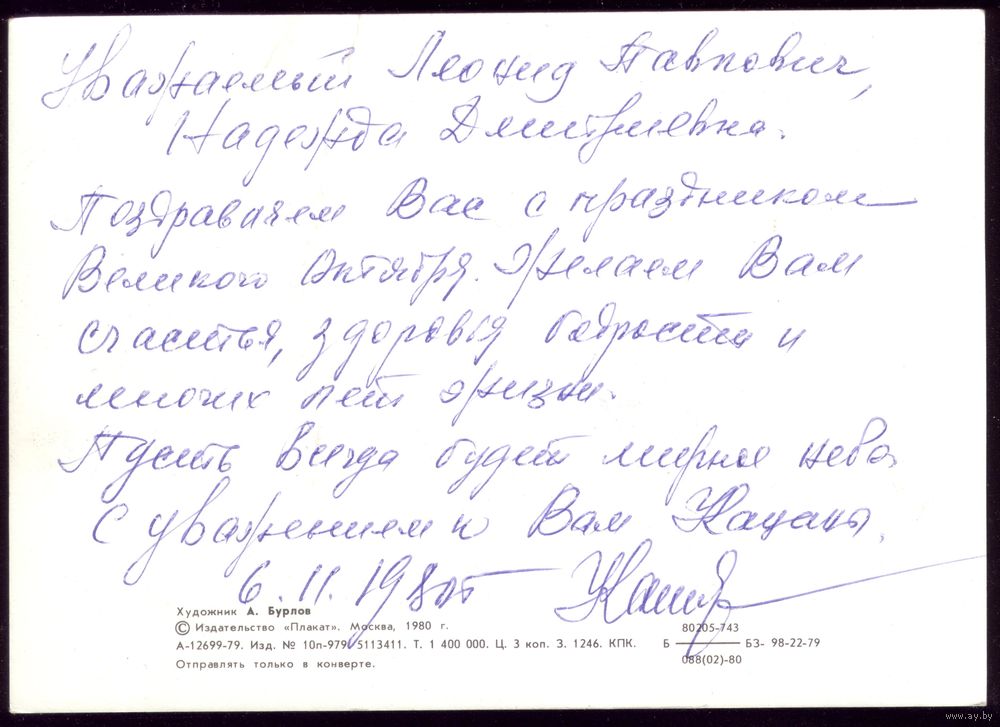 Уважаемый Леонид Павлович,
Надежда Дмитриевна.
Поздравляем Вас с праздником
Великого Октября. Желаем Вам
счастья, здоровья бодрости и
многих лет жизни.
Пусть всегда будет мирное небо.
С уважением к Вам
6.11.1980г
Художник А. Бурлов
© Издательство «Плакат». Москва, 1980 г.
А-12699-79. Изд. № 10п-979. 5113411. Т. 1 400 000. Ц. 3 коп. З. 1246. КПК.
Отправлять только в конверте.
80205-743
Б ——— БЗ- 98-22-79
088(02)-80
www.ay.by